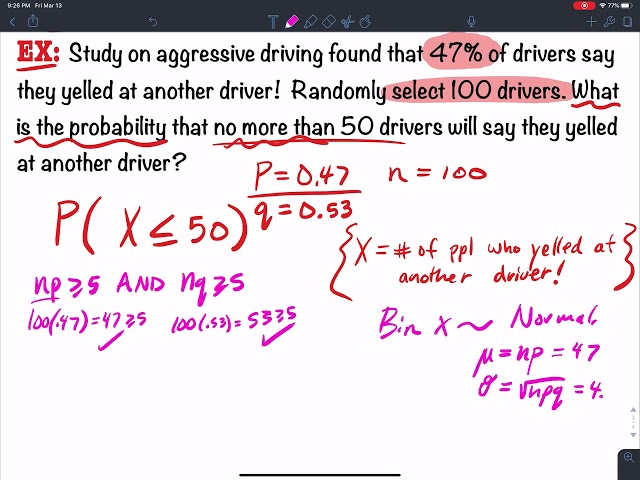 9:26 PM Fri Mar 13
77%
EX: Study on aggressive driving found that 47% of drivers say
they yelled at another driver! Randomly select 100 drivers. What
is the probability that no more than 50 drivers will say they yelled
at another driver?
P = 0.47 n = 100
q = 0.53
P( X ≤ 50)
{ X = # of ppl who yelled at
another driver! }
np ≥ 5 AND nq ≥ 5
100(.47) = 47 ≥ 5 100(.53) = 53 ≥ 5
Bin X ~ Normal
μ = np = 47
σ = √npq = 4.